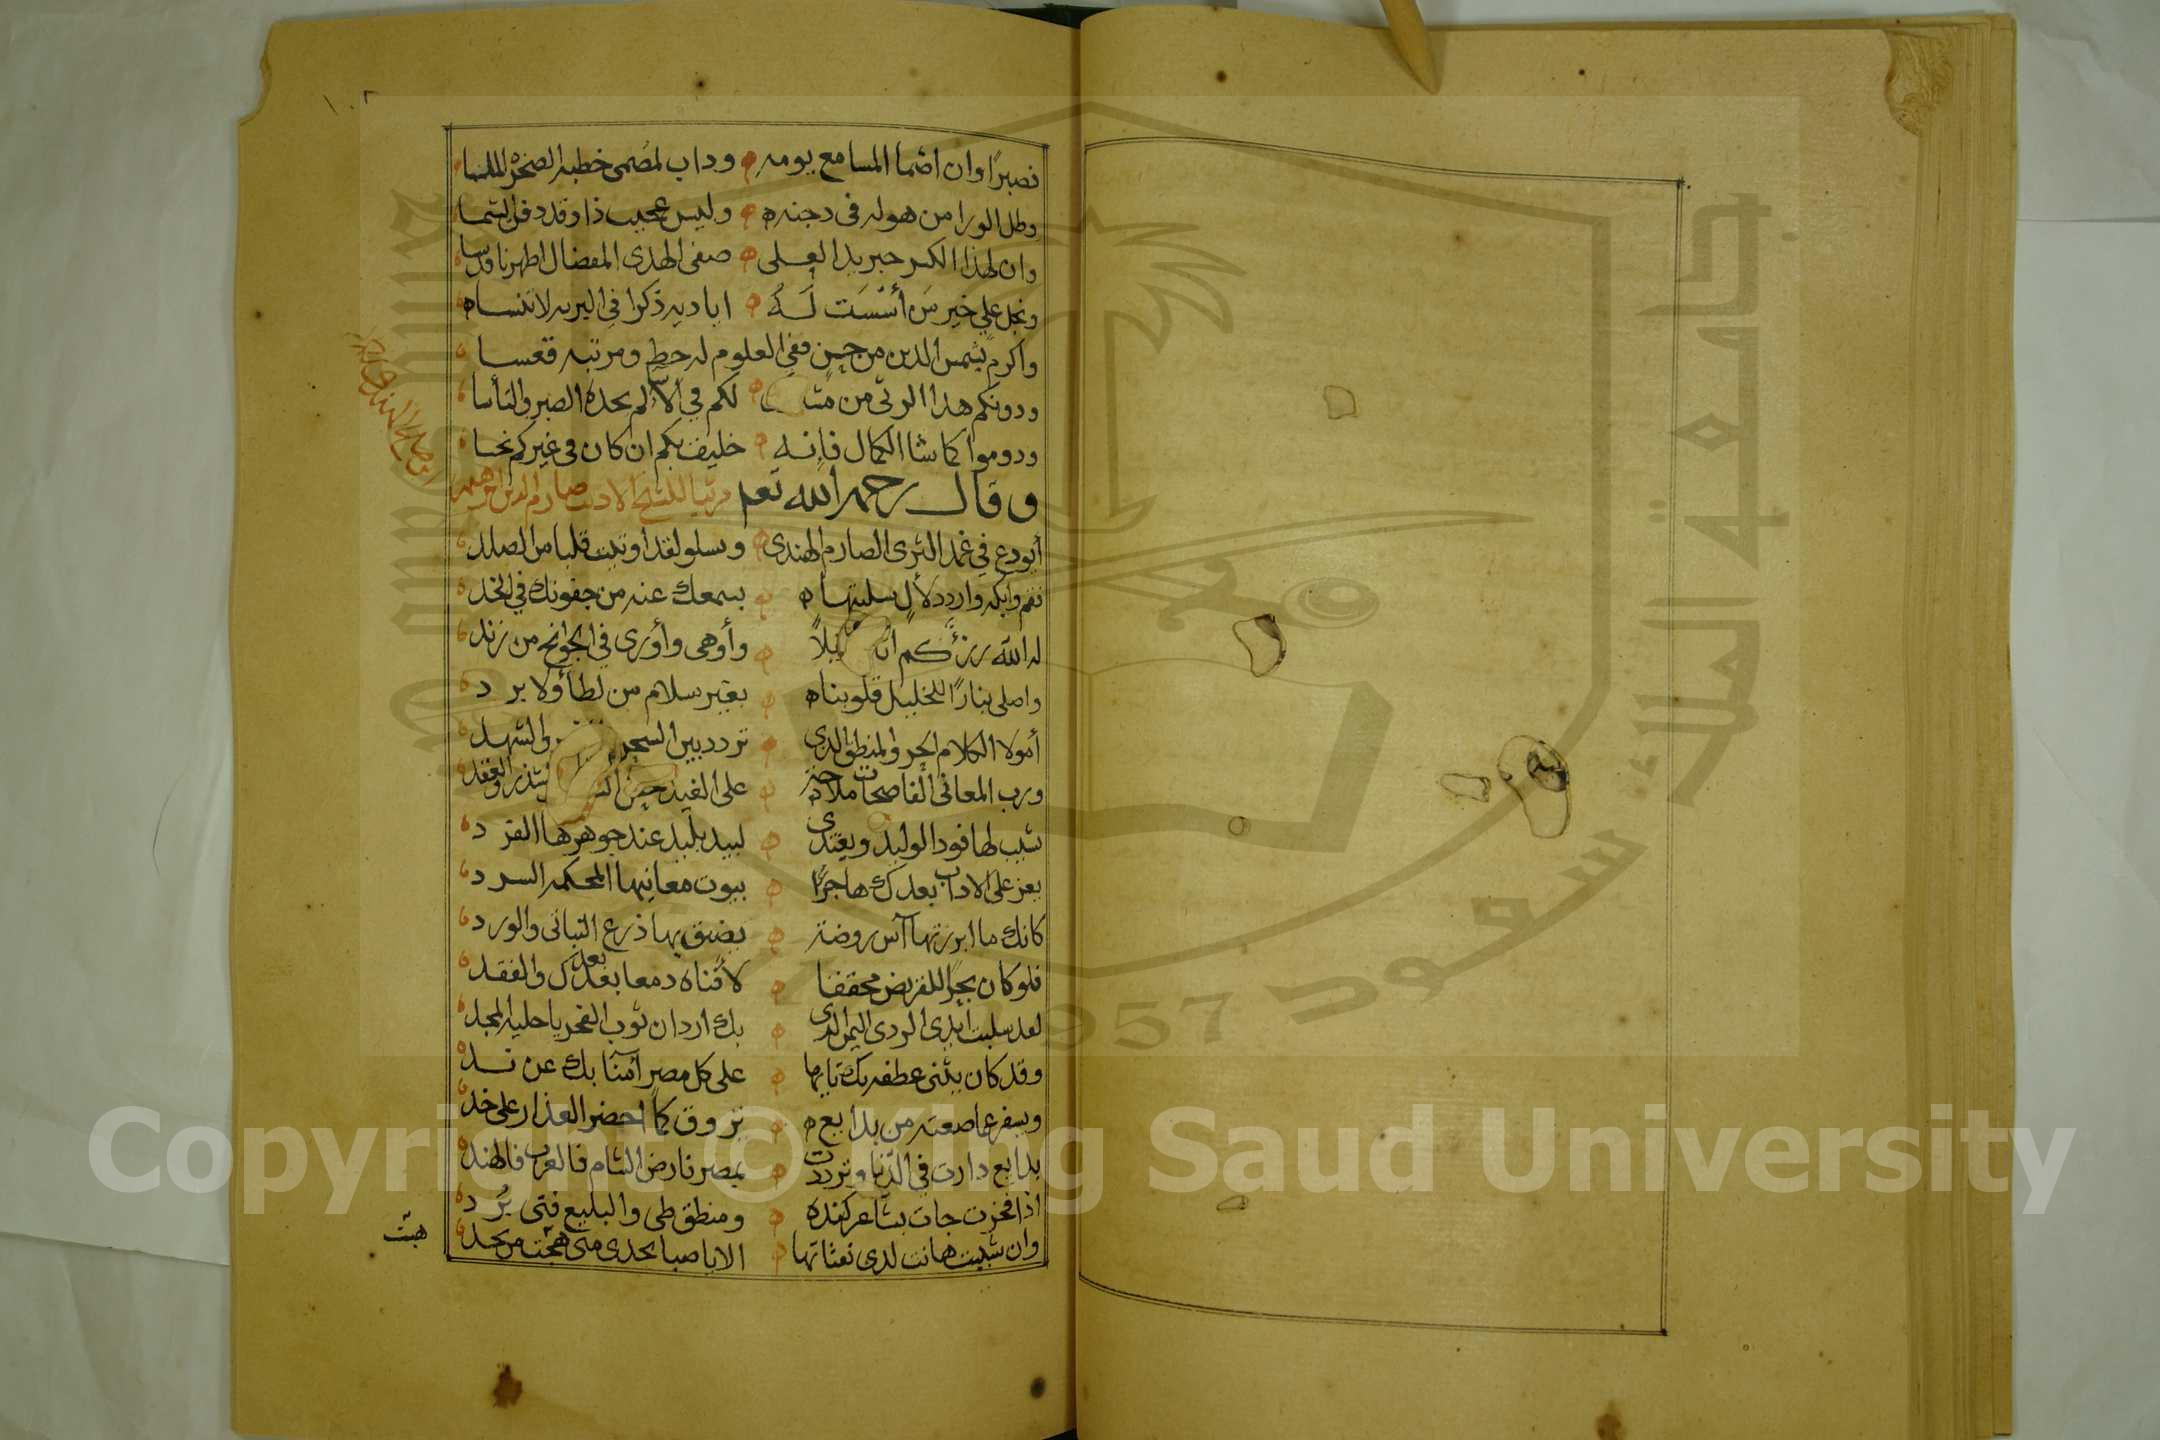 ١٠٢
فصبرًا وان اصما المسامع يومه وداب لمصمى خطبه الصخرة الملسا
وظل الورا من هوله فى دجنه وليس عجيب ذا وقد دفن الشمسا
وان لهذا الكسر جبر بذا العلى صفى الهدى المفضال اطهرنا قدسا
ونجل علي خير من أسّسَت لَهُ اياديه ذكرا في البريه لا تنسا
واكرم بشمس الدين من حسن ففي العلوم له حط ومرتبه قعسا
ودونكم هذا الرثى من لكم في الأسى لم يحده الصبر والتأسا
ودوموا كما شا الكمال فإنه خليف بكم ان كان فى غيركم نحسا
وقال رحمه الله تعم مرثيا للشيخ الاديب صارم الدين ابرهيم
أيودع في غمد الثرى الصارم الهندى وبسلو لقد اوتيت قلبا من الصلد
فقم وابكه واردد لأل سلبتها بسمعك عنه من جفونك في الخد
له الله رزئكم نبلاً وأوهى وأورى في الجوانح من زند
واصلى بنارًا للخليل قلوبنا بغير سلام من لظا أولا برد
أمولا الكلام الحر والمنطق الذى تردد بين السحر والشهد
ورب المعانى الفاضحات ملاحة على الغيد حسن الشذر والعقد
شيب لها فود الوليد ويغتدى لبيد بليد عند جوهرها الفرد
يعز على الاداب بعدك هاجرًا بيوت معانيها المحكمه السرد
كانك ما ابرزتها آس روضة يضيق بها ذرع النباتى والورد
فلو كان بحرًا للقريض محققنا لأفناه دمعا بعدك والفقد
لعد سلبت ايدى الردى اليمن الذى بك اردان ثوب الفخر يا حلية المجد
وقد كان يثنى عطفه بك تايها على كل مصر أمنًا بك عن ند
ويسفر عما صعته من بدايع تروق كما اخضر العذار على خد
بدايع دارت في الدّنا وترددت بمصر فارض الشام فالغرب فالهند
اذا فخرت جات بشاعر كنده ومنطق طى والبليغ فتى بُرد
وان شببت هانت لدى نفثاتها الا يا صبا نجدى متى هجت من نجد
هجت
Copyright © King Saud University
جامعة الملك سعود
1957